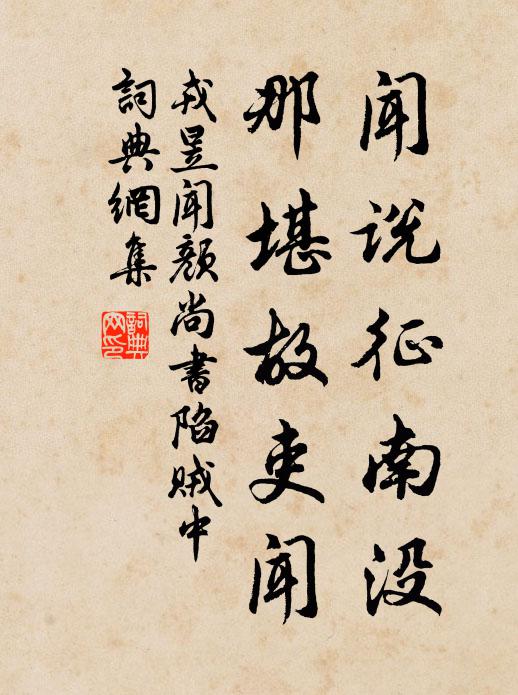 闻说征南没
那堪故吏闻
戎昱闻颜尚书陷贼中
词典网集
詞典
网印